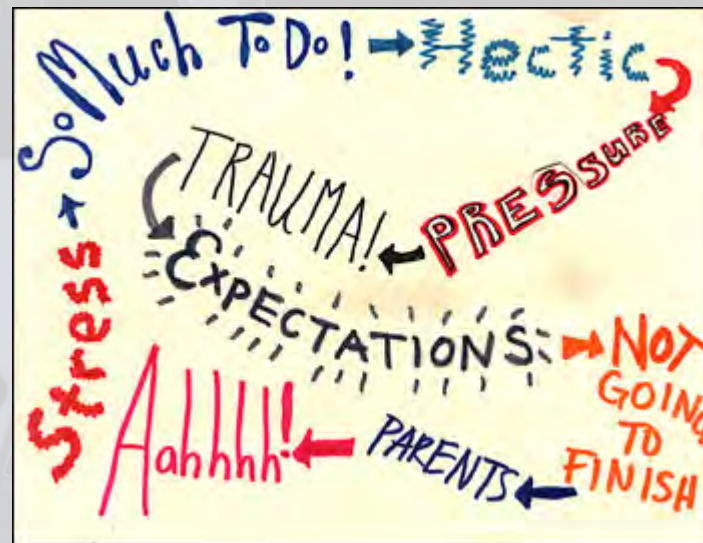 Stress
So Much To Do!
Hectic
PRESSURE
TRAUMA!
EXPECTATIONS
NOT
GOING
TO
FINISH
PARENTS
Aahhhh!